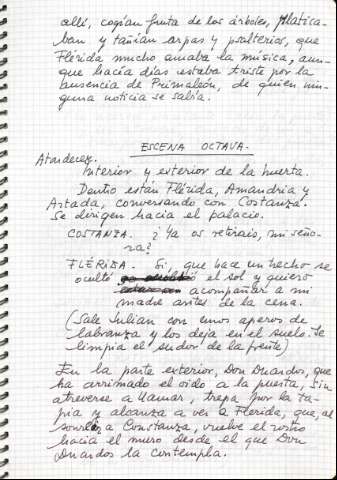 allí, cogían fruta de los árboles, platica-
ban y tañían arpas y psalterios, que
Flérida mucho amaba la música, aun-
que hacía días estaba triste por la
ausencia de Primaleón, de quien nin-
guna noticia se sabía.
ESCENA OCTAVA.
Atardecer.
Interior y exterior de la huerta.
Dentro están Flérida, Amandria y
Artada, conversando con Costanza.
Se dirigen hacia el palacio.
COSTANZA. ¿Ya os retiráis, mi seño-
ra?
FLÉRIDA. Sí, que hace un hecho se
ocultó el sol y quiero
acompañar a mi
madre antes de la cena.
(Sale Julián con unos aperos de
labranza y los deja en el suelo. Se
limpia el sudor de la frente)
En la parte exterior, Don Duardos, que
ha arrimado el oído a la puerta, sin
atreverse a llamar, trepa por la ta-
pia y alcanza a ver a Flérida, que, al
sonreír a Constanza, vuelve el rostro
hacia el muro desde el que Don
Duardos la contempla.